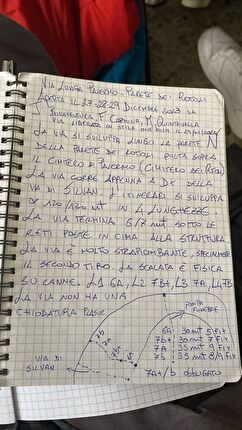 VIA LUNGA PALERMO - PARETE DEI ROTOLI
APERTA IL 27-28-29 DICEMBRE 2023 DA
BONAVENTURA, F. CARDINA, M. QUINTAVALLA
VIA LIBERATA IN STILE ONE PUSH IL 21/01/2024
LA VIA SI SVILUPPA LUNGO LA PARETE
DELLA PARETE DEI ROTOLI POSTA SOPRA
IL CIMITERO DI PALERMO (CIMITERO DEI ROTOLI)
LA VIA CORRE APPENNA A DX DELLA
VIA DI SILVAN. L'ITINERARI SI SVILUPPA
X 120/130 MT IN 4 LUNGHEZZE.
LA VIA TERMINA 6/7 MT SOTTO LE
RETI POSTE IN CIMA ALLA STRUTTURA
LA VIA È MOLTO STRAPIOMBANTE, SPECIALMENTE
IL SECONDO TIRO. LA SCALATA È FISICA
SU CANNE. L1 6A, L2 7B+, L3 7A, L4 7B
LA VIA NON HA UNA
CHIODATURA PLAISIR
N
POMPE
FUNEBRE
6A 30 MT 5 FIX
7b+ 30 MT 7 FIX
7A 35 MT 9 FIX
7b 35 MT 8/9 FIX
7A+/b OBBLIGATO
VIA DI
SILVAN
7b
7A
7b+
S